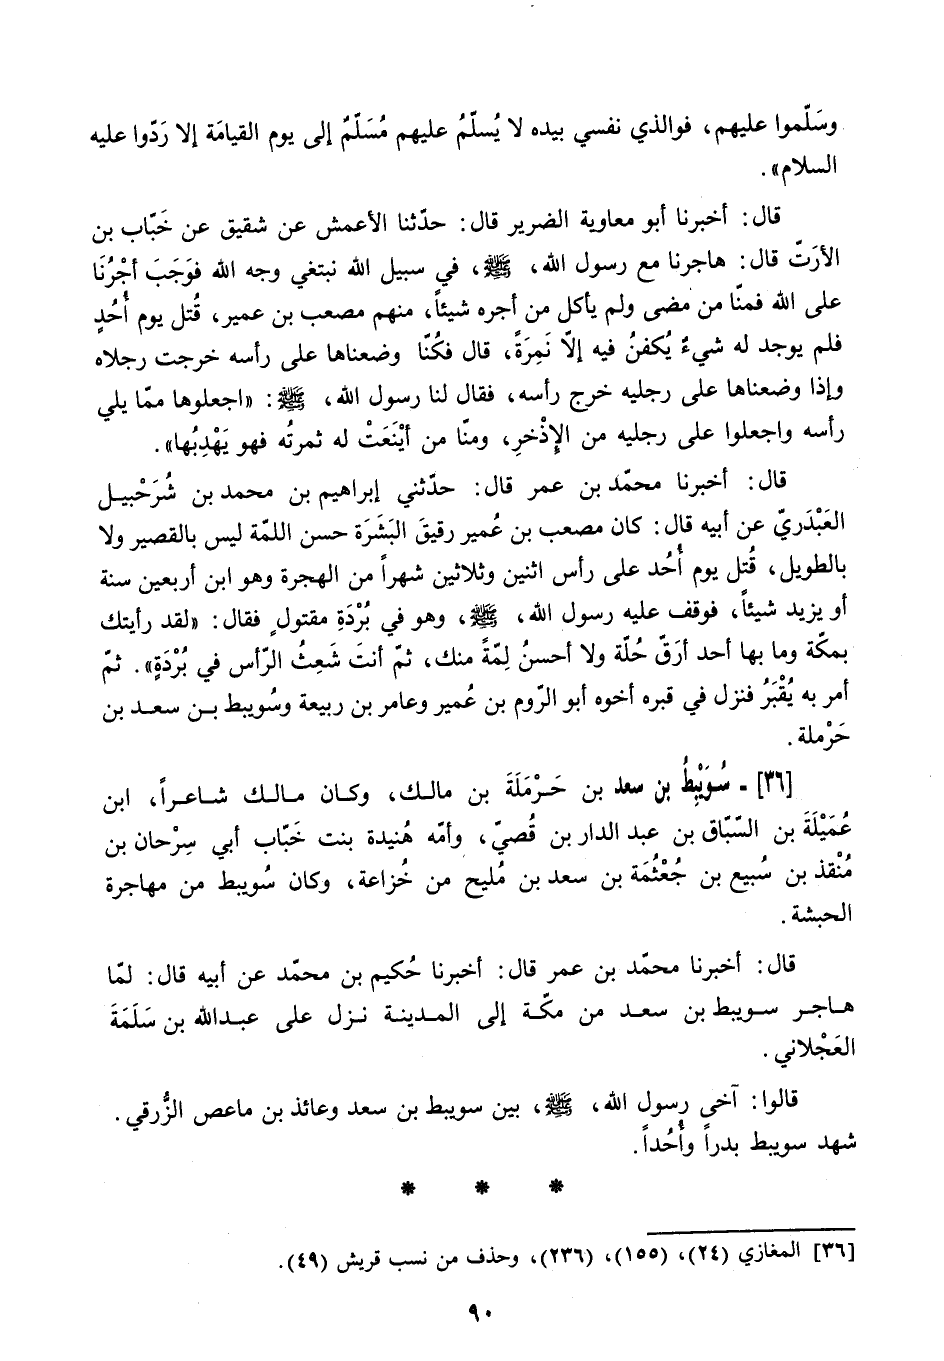 وسَلّموا عليهم، فوالذي نفسي بيده لا يُسلّمُ عليهم مُسَلّمٌ إلى يوم القيامَة إلا رَدّوا عليه
السلام».
قال: أخبرنا أبو معاوية الضرير قال: حدّثنا الأعمش عن شقيق عن خَبّاب بن
الأرَتّ قال: هاجرنا مع رسول الله، ﷺ، في سبيل الله نبتغي وجه الله فوَجَبَ أجْرُنَا
على الله فمنّا من مضى ولم يأكل من أجره شيئاً، منهم مصعب بن عمير، قُتل يوم أُحُدٍ
فلم يوجد له شيءٌ يُكفنُ فيه إلاّ نَمِرَةً، قال فكُنّا وضعناها على رأسه خرجت رجلاه
وإذا وضعناها على رجليه خرج رأسه، فقال لنا رسول الله، ﷺ: «اجعلوها ممّا يلي
رأسه واجعلوا على رجليه من الإذْخرِ، ومنّا من أيْنَعَتْ له ثمرتُه فهو يَهْدِبُها».
قال: أخبرنا محمّد بن عمر قال: حدّثني إبراهيم بن محمد بن شُرَحْبيل
العَبْدَريّ عن أبيه قال: كان مصعب بن عُمير رقيقَ البَشَرَة حسن اللمّة ليس بالقصير ولا
بالطويل، قُتل يوم أُحُد على رأس اثنين وثلاثين شهراً من الهجرة وهو ابن أربعين سنة
أو يزيد شيئاً، فوقف عليه رسول الله، ﷺ، وهو في بُرْدَةِ مقتولٍ فقال: «لقد رأيتك
بمكّة وما بها أحد أرَقّ حُلّة ولا أحسنُ لِمّةً منك، ثمّ أنتَ شَعِثُ الرّأس في بُرْدَةٍ». ثمّ
أمر به يُقْبَرُ فنزل في قبره أخوه أبو الرّوم بن عُمير وعامر بن ربيعة وسُويبط بن سعد بن
حَرْملة.
[٣٦] ـ سُوَيْبِطُ بن سعد بن حَرْمَلَةَ بن مالك، وكان مالك شاعراً، ابن
عُمَيْلَةَ بن السّبّاق بن عبد الدار بن قُصيّ، وأمّه هُنيدة بنت خَبّاب أبي سِرْحان بن
مُنْقذ بن سُبيع بن جُعْثُمَة بن سعد بن مُليح من خُزاعة، وكان سُويبط من مهاجرة
الحبشة.
قال: أخبرنا محمّد بن عمر قال: أخبرنا حُكيم بن محمّد عن أبيه قال: لمّا
هاجر سويبط بن سعد من مكّة إلى المدينة نزل على عبدالله بن سَلَمَةَ
العَجْلاني.
قالوا: آخى رسول الله، ﷺ، بين سويبط بن سعد وعائذ بن ماعص الزُّرقي.
شهد سويبط بدراً وأُحُداً.
* * *
[٣٦] المغازي (٢٤)، (١٥٥)، (٢٣٦)، وحذف من نسب قريش (٤٩).
٩٠